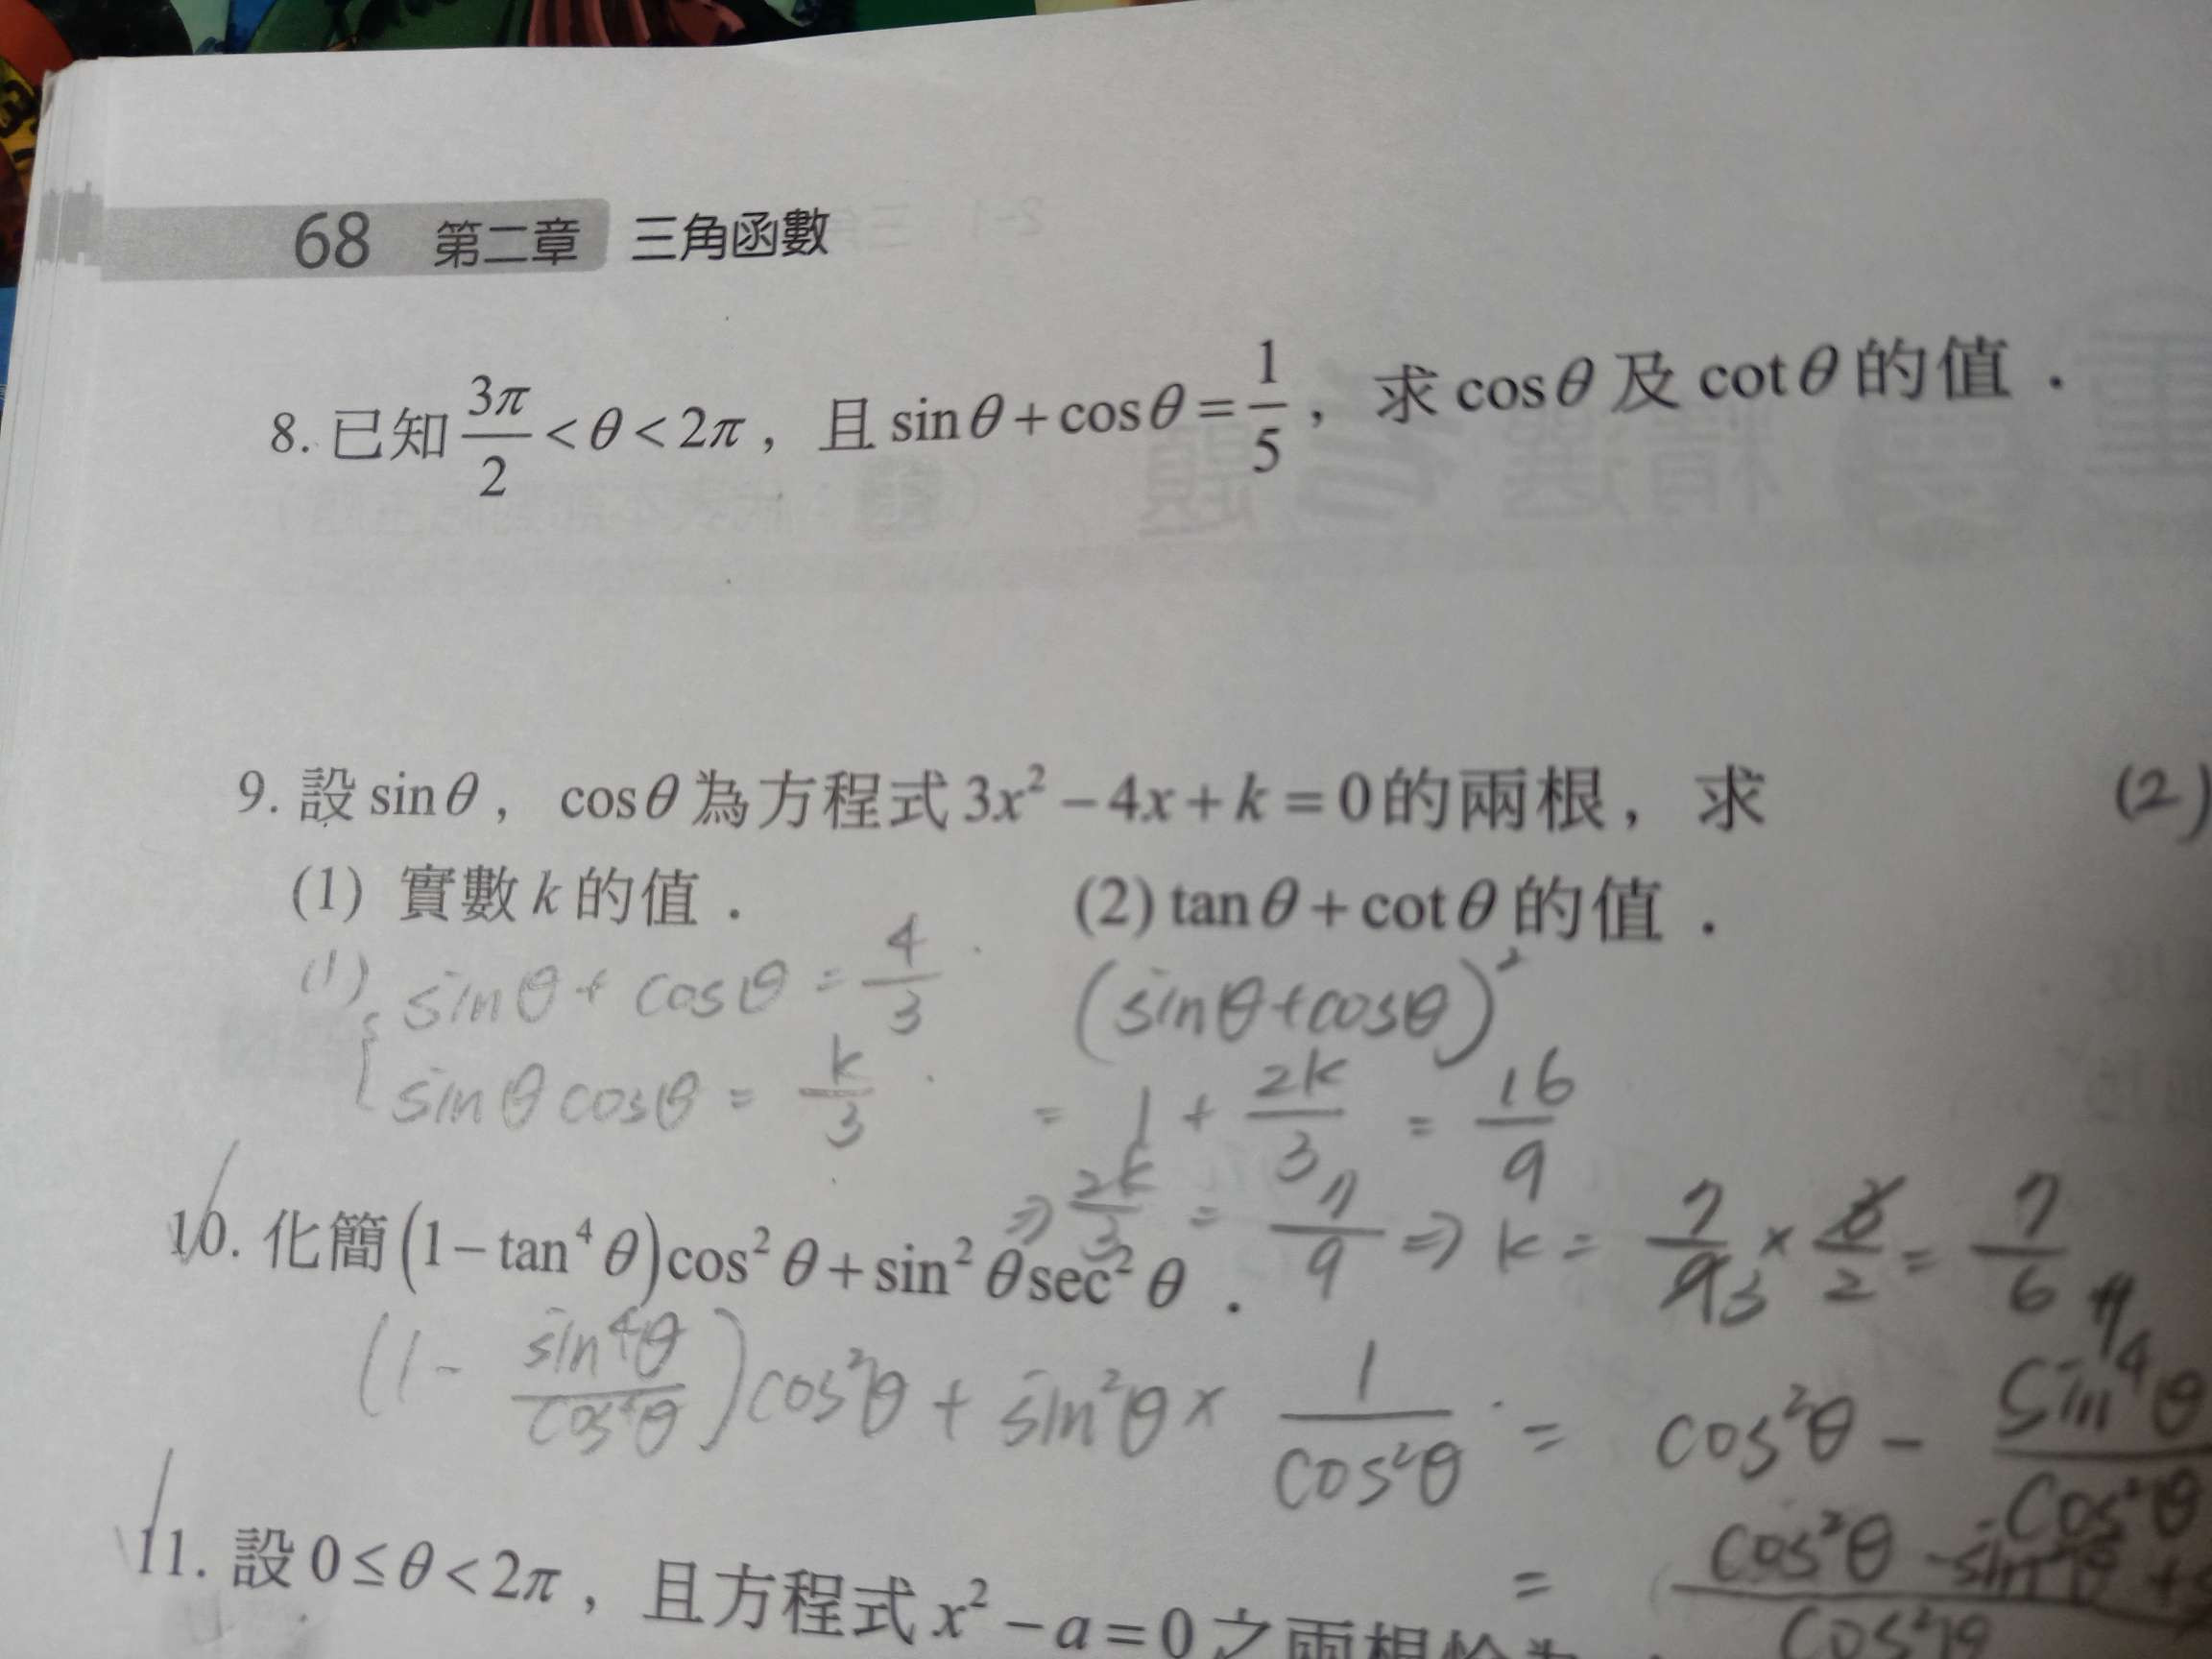 68 第二章 三角函數
8. 已知 3π/2 < θ < 2π，且 sinθ + cosθ = 1/5，求 cosθ 及 cotθ 的值．
9. 設 sinθ，cosθ 為方程式 3x² − 4x + k = 0 的兩根，求 (2)
(1) 實數 k 的值． (2) tanθ + cotθ 的值．
(1) { sinθ + cosθ = 4/3 (sinθ+cosθ)²
sinθ cosθ = k/3 = 1 + 2k/3 = 16/9
⇒ 2k/3 = 7/9 ⇒ k = 7/9 × 3/2 = 7/6
10. 化簡 (1 − tan⁴θ)cos²θ + sin²θ sec²θ．
(1 − sin⁴θ/cos⁴θ)cos²θ + sin²θ × 1/cos²θ = cos²θ − sin⁴θ/cos²θ
= cos²θ − sin⁴θ + / cos²θ
11. 設 0 ≤ θ < 2π，且方程式 x² − a = 0 之兩根恰為